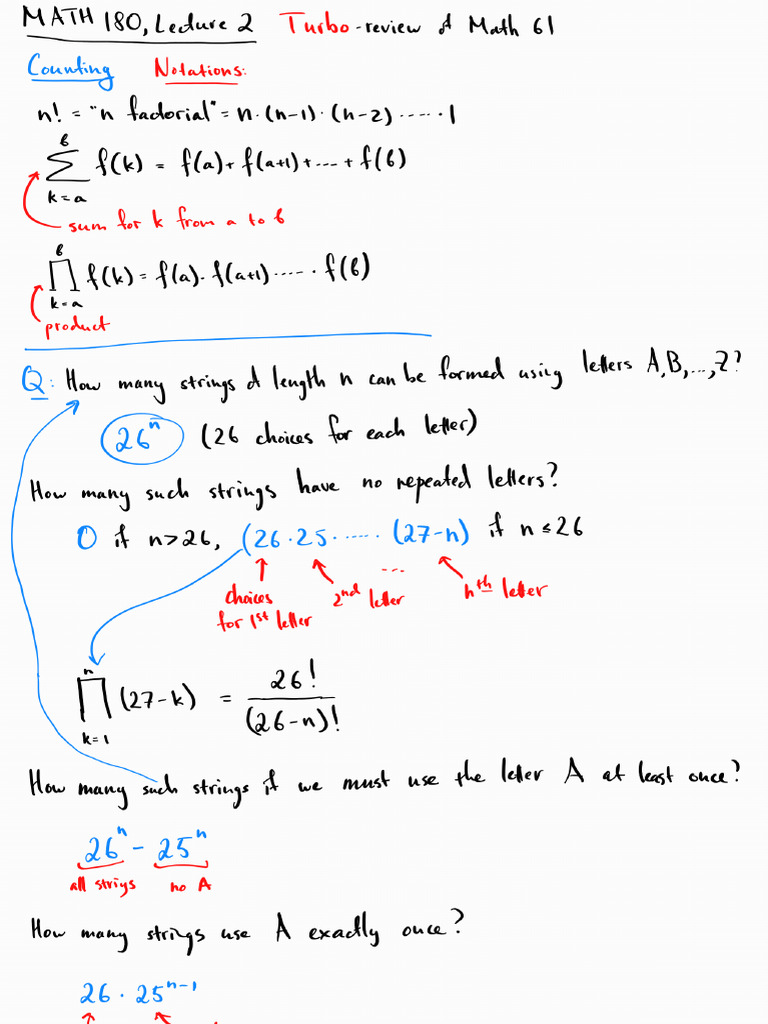 MATH 180, Lecture 2 Turbo-review of Math 61
Counting Notations:
n! = "n factorial" = n·(n-1)·(n-2)·····1
b
∑ f(k) = f(a)+f(a+1)+...+f(b)
k=a
sum for k from a to b
b
∏ f(k) = f(a)·f(a+1)·····f(b)
k=a
product
Q: How many strings of length n can be formed using letters A,B,...,Z?
26ⁿ (26 choices for each letter)
How many such strings have no repeated letters?
0 if n>26, (26·25·····(27-n) if n≤26
...
choices 2nd letter nth letter
for 1st letter
n
∏ (27-k) = 26!/(26-n)!
k=1
How many such strings if we must use the letter A at least once?
26ⁿ - 25ⁿ
all strings no A
How many strings use A exactly once?
26·25ⁿ⁻¹